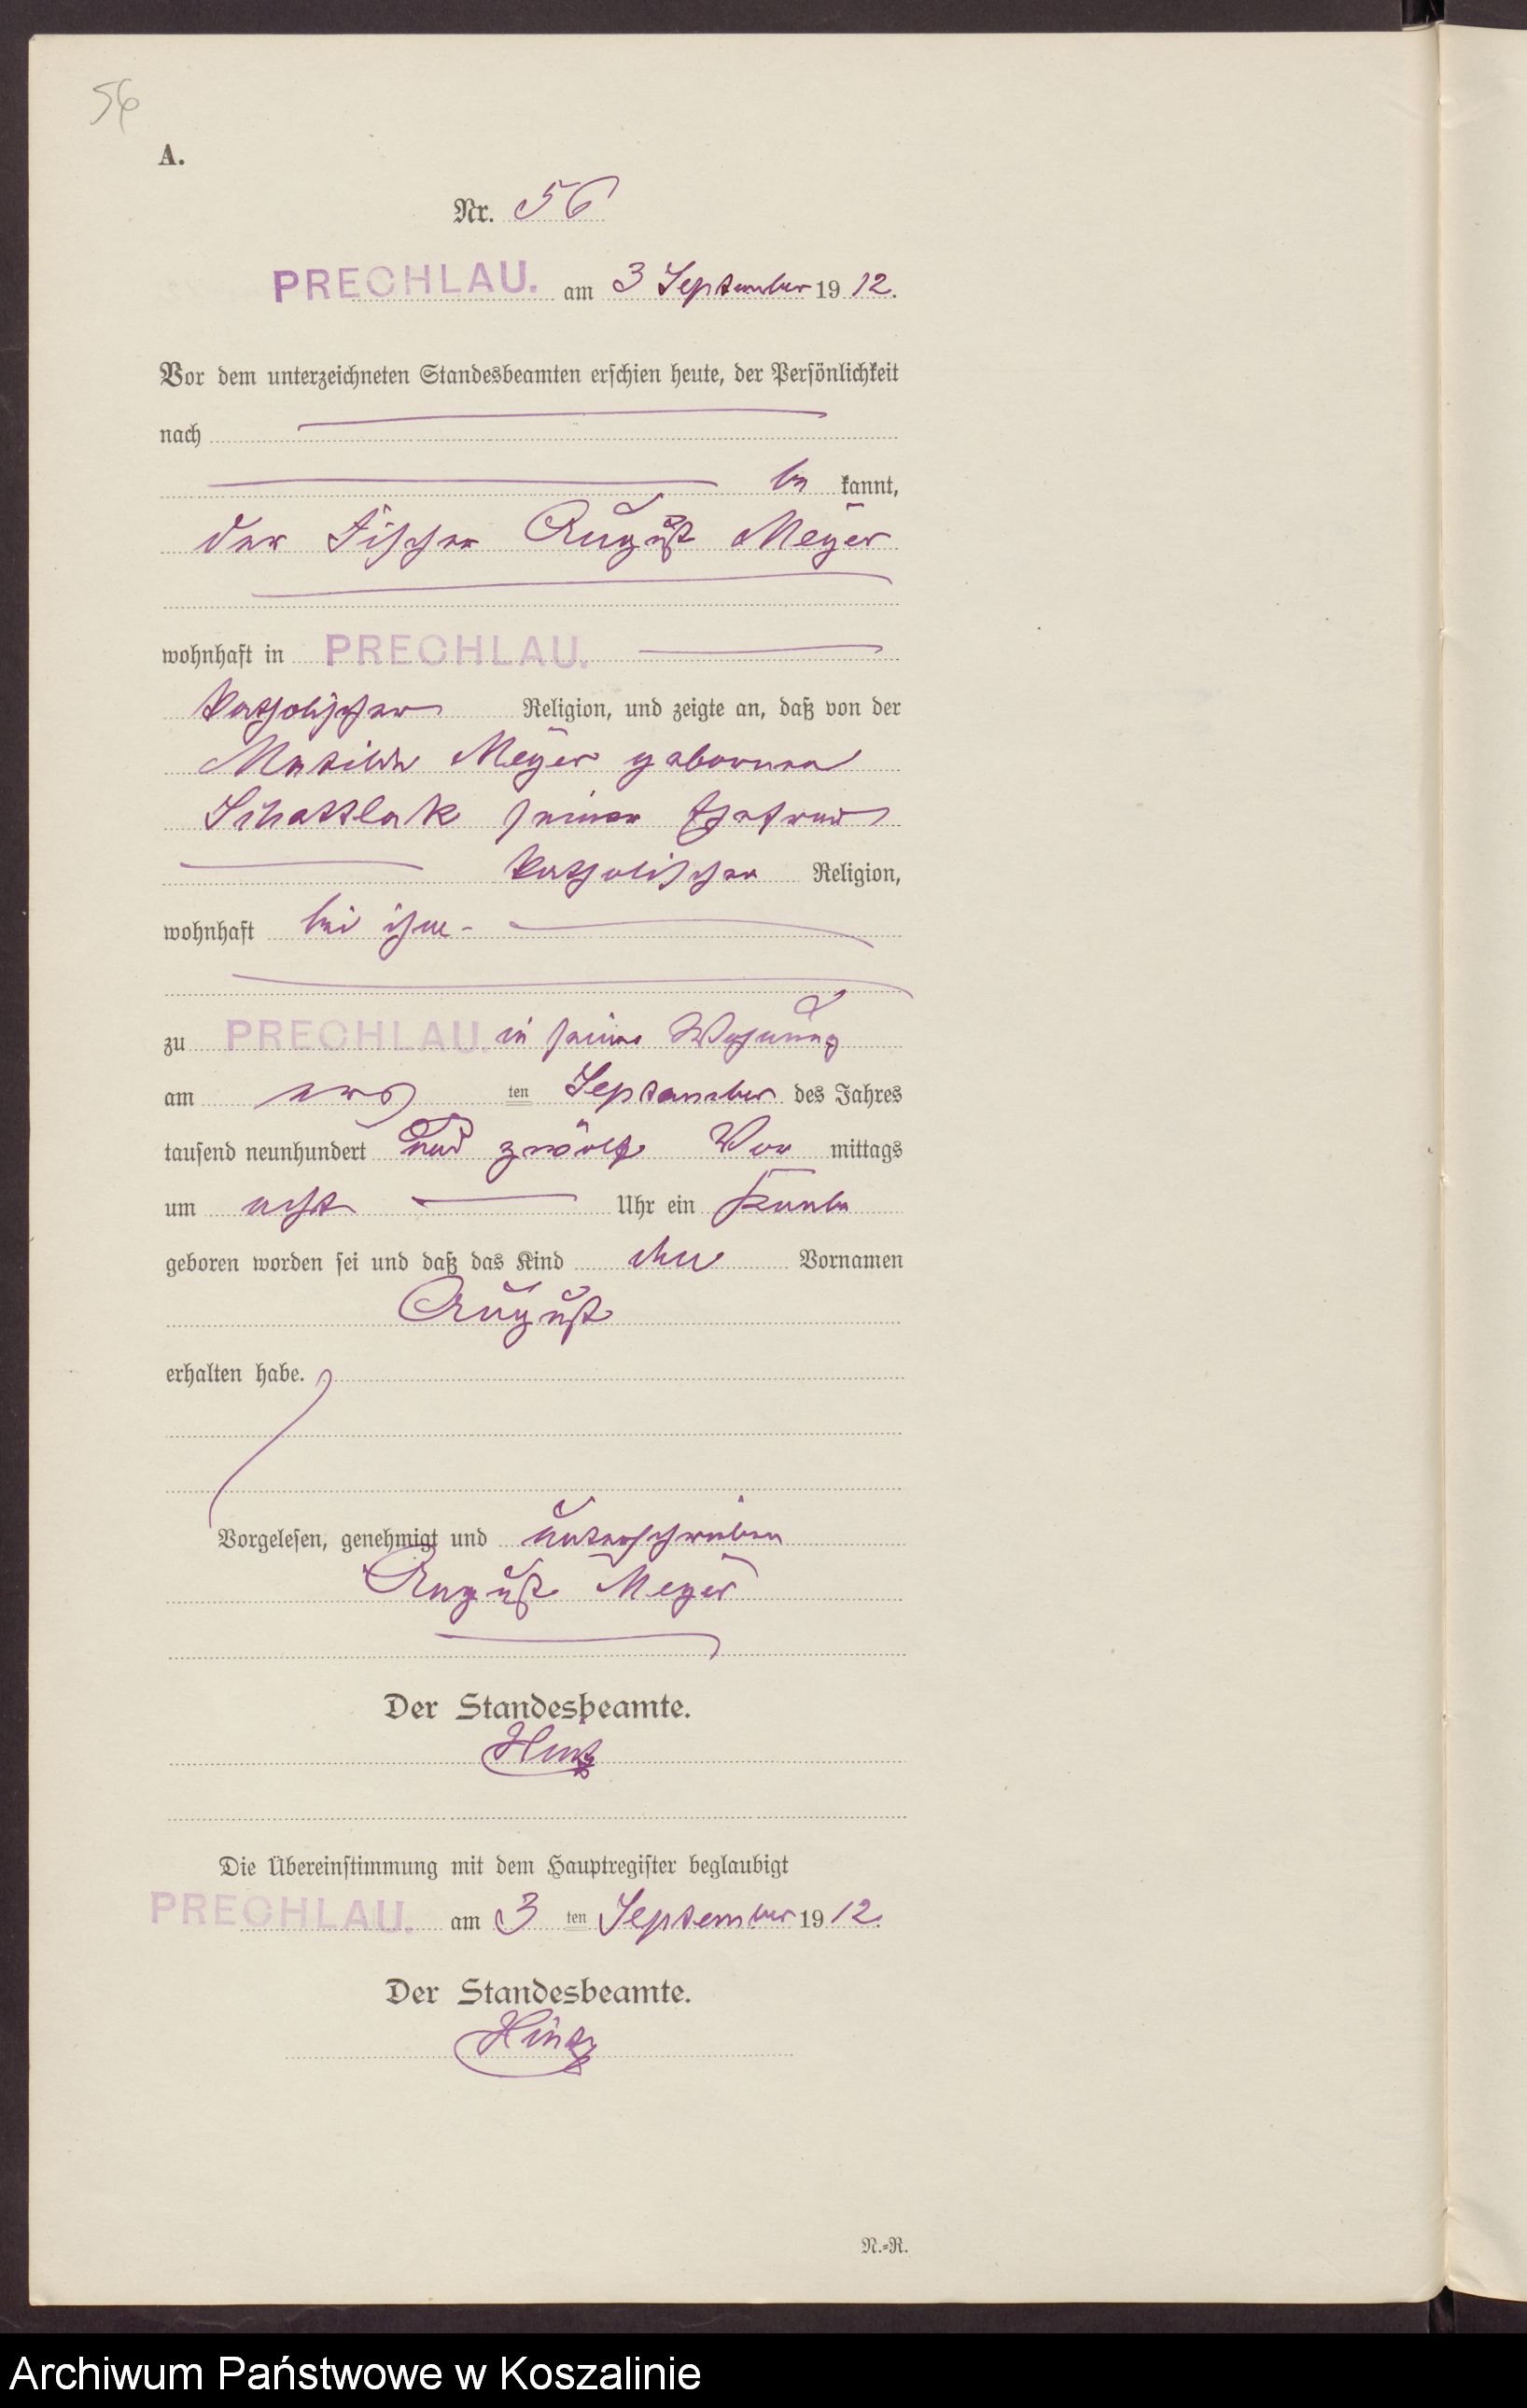 56
A.
Nr. 56
PRECHLAU. am 3 September 1912.
Vor dem unterzeichneten Standesbeamten erschien heute, der Persönlichkeit
nach
be kannt,
der Fischer August Meyer
wohnhaft in PRECHLAU.
katholischer Religion, und zeigte an, daß von der
Matilde Meyer geborenen
seiner Ehefrau
katholischer Religion,
wohnhaft bei ihm
zu PRECHLAU. in seine Wohnung
am ten September des Jahres
tausend neunhundert und zwölf Vor mittags
um acht Uhr ein Knabe
geboren worden sei und daß das Kind den Vornamen
August
erhalten habe.
Vorgelesen, genehmigt und unterschrieben
August Meyer
Der Standesbeamte.
Hintz
Die Übereinstimmung mit dem Hauptregister beglaubigt
PRECHLAU. am 3 ten September 1912.
Der Standesbeamte.
Hintz
N.=R.
Archiwum Państwowe w Koszalinie